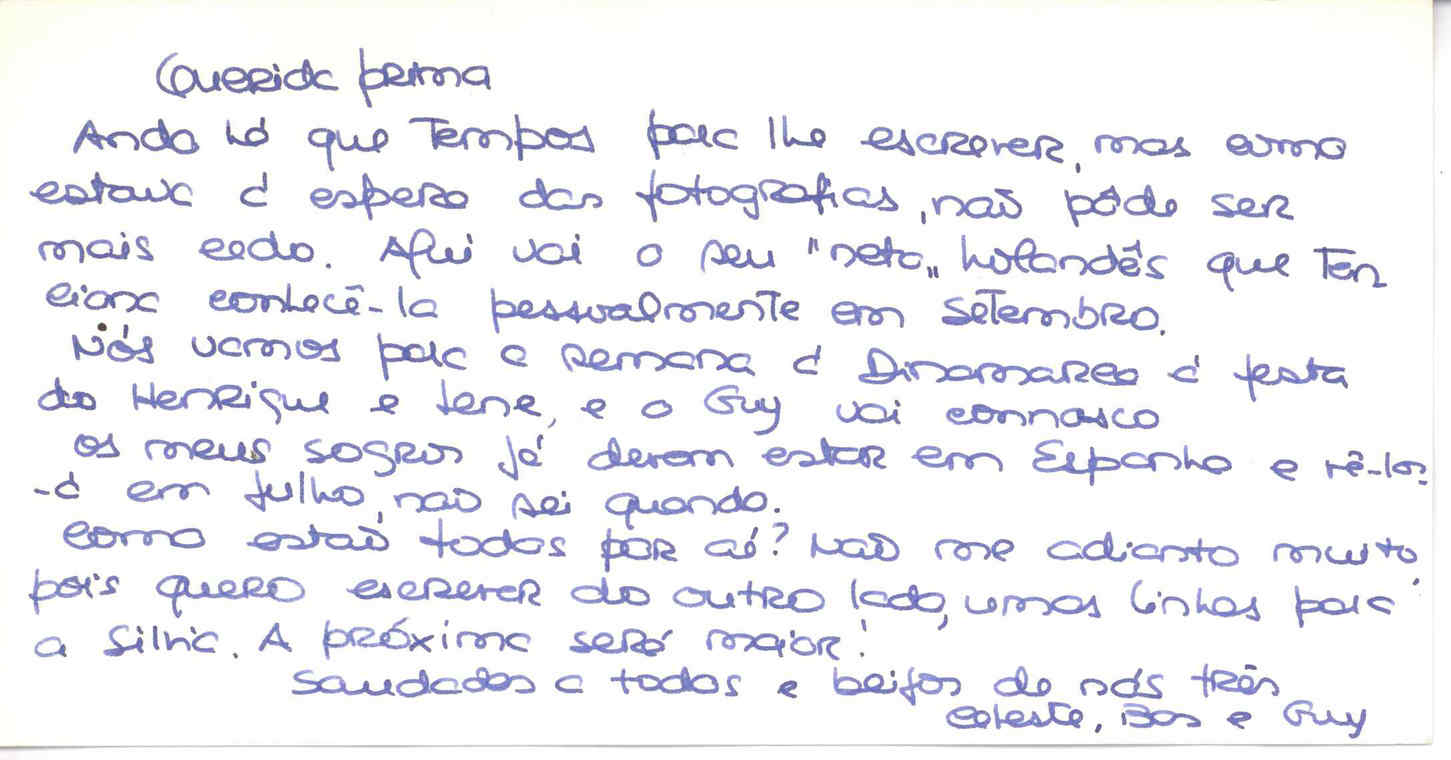 Querida prima
Ando há que Tempos para lhe escrever, mas como
estava à espera das fotografias, não pôde ser
mais cedo. Aqui vai o seu "neto" holandês que Ten
ciona conhecê-la pessoalmente em Setembro.
Nós vamos para a semana à Dinamarca à festa
do Henrique e Lene, e o Guy vai connosco
os meus sogros já devem estar em Espanha e vê-los-
-á em Julho, não sei quando.
Como estão todos por aí? Não me adianto muito,
pois quero escrever do outro lado, umas linhas para
a Silvia. A próxima será maior!
Saudades a todos e beijos de nós três
Celeste, Bas e Guy